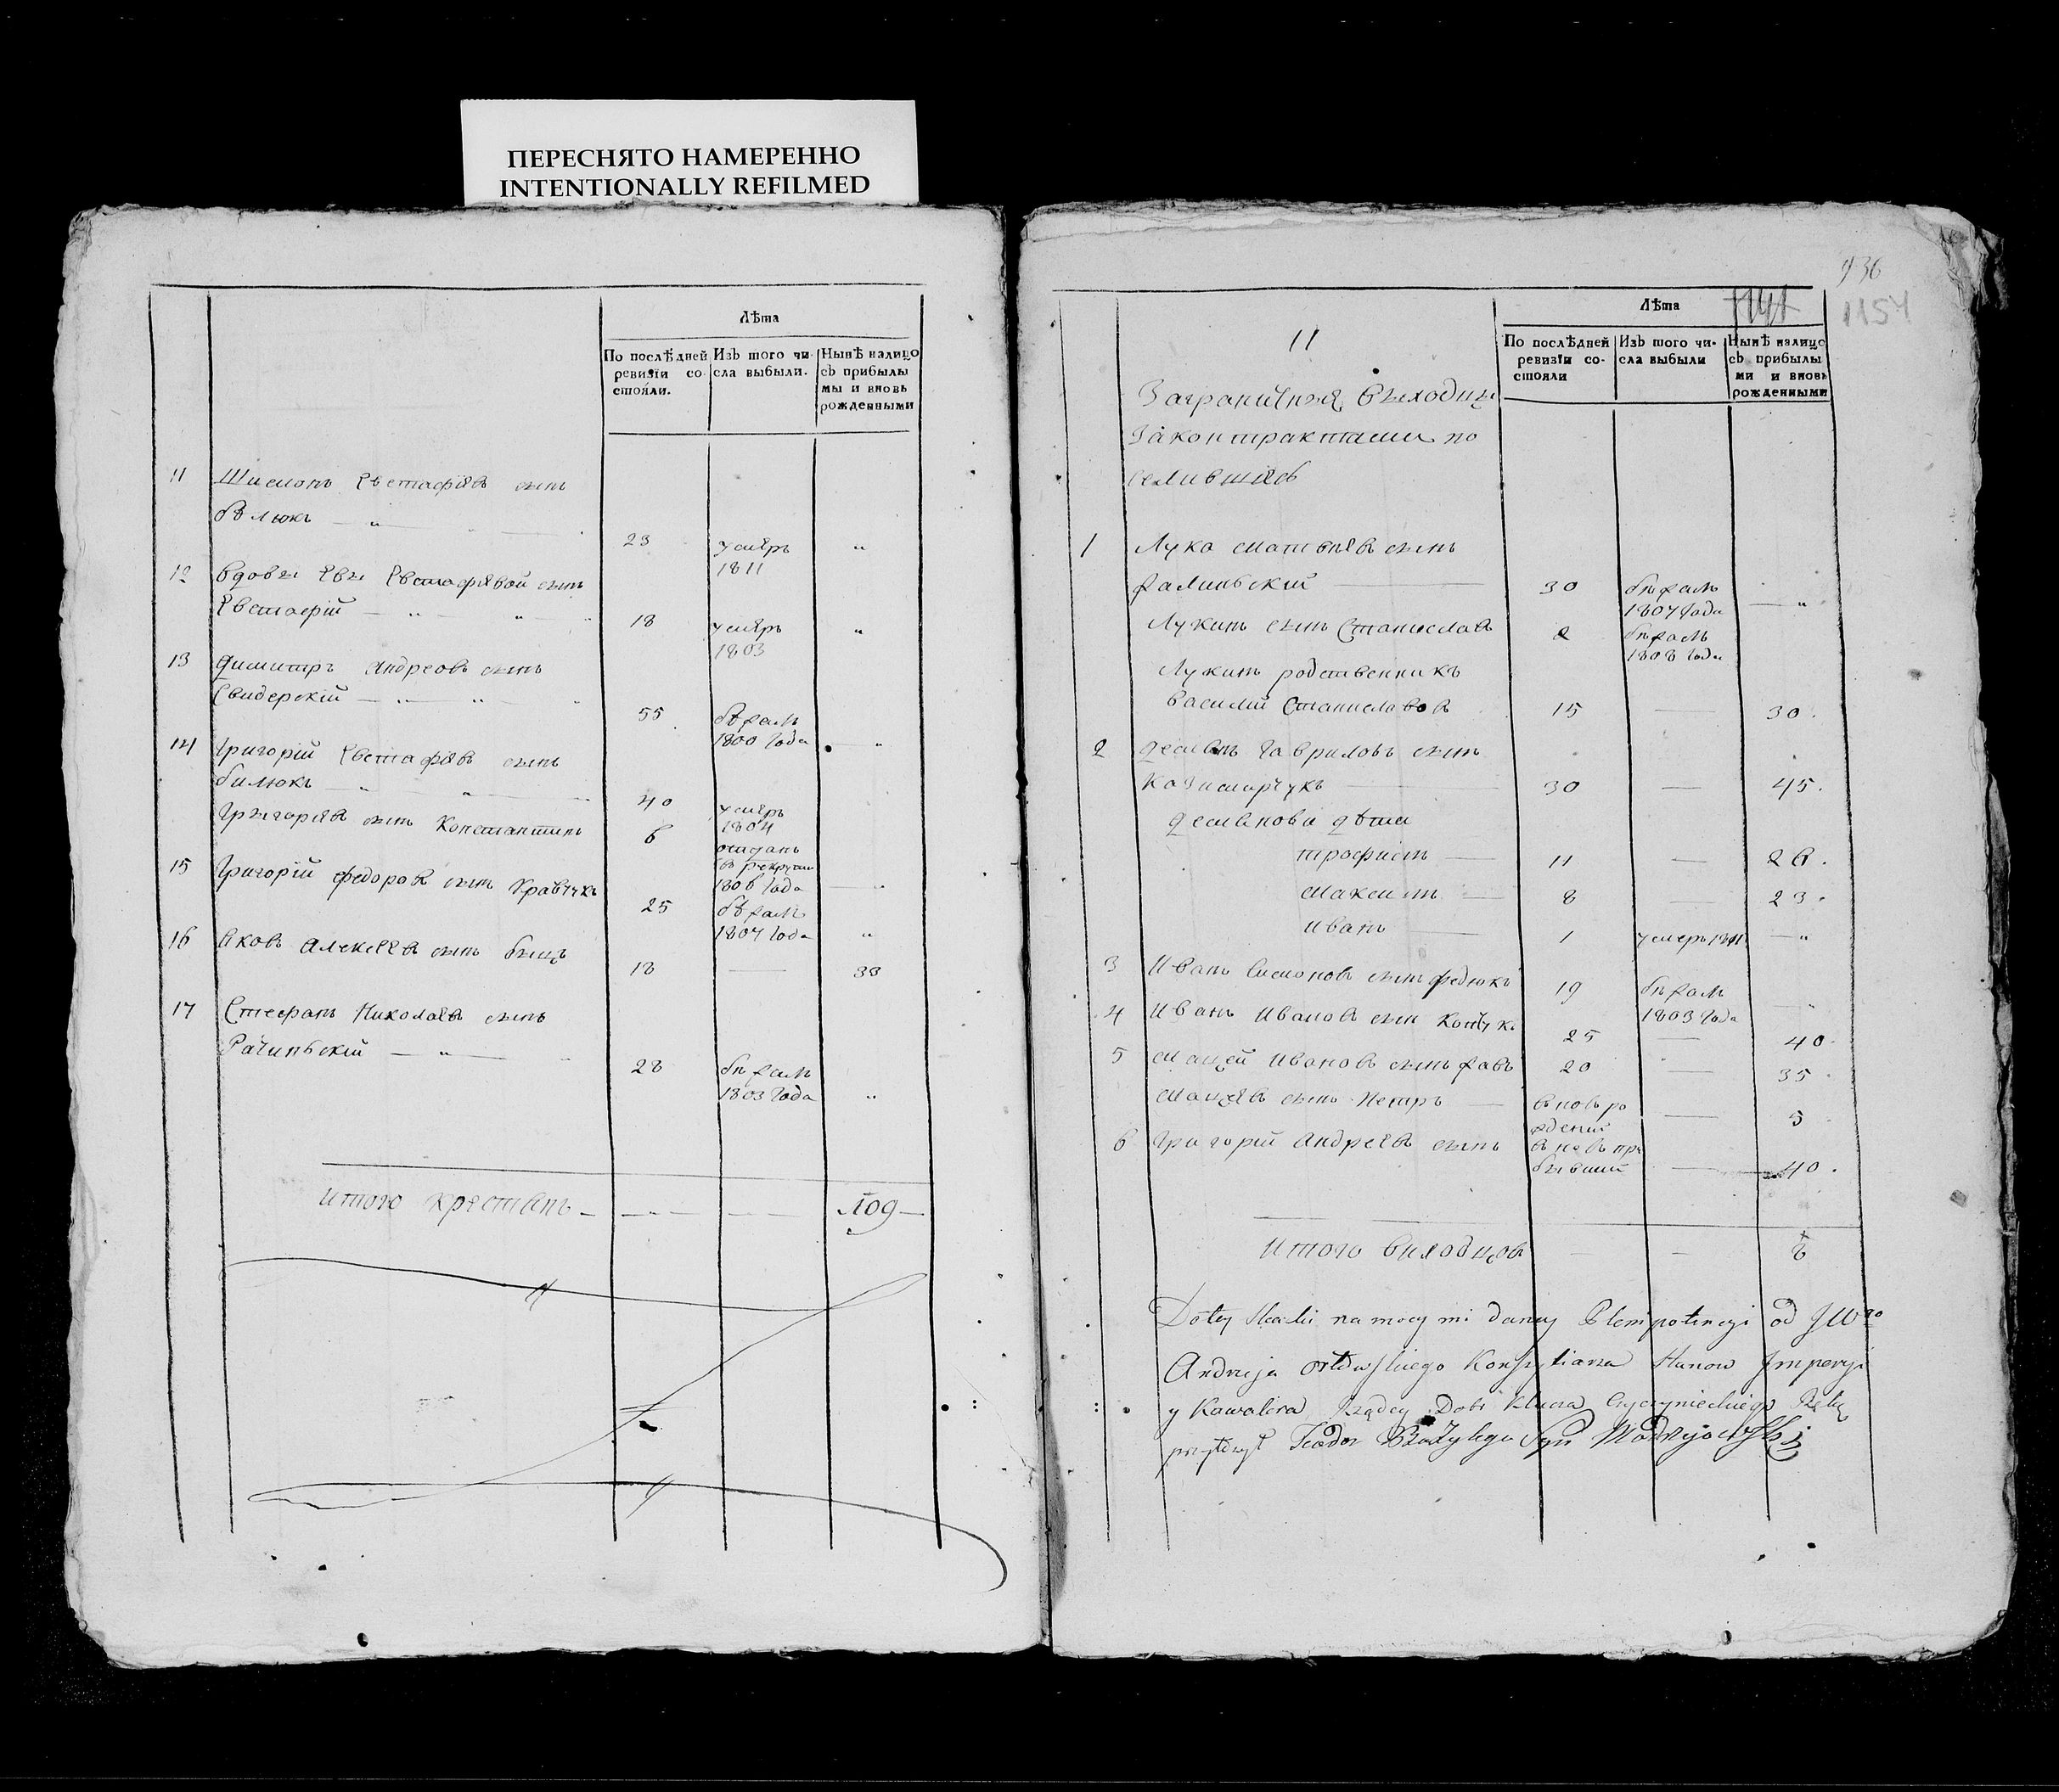 ПЕРЕСНЯТО НАМЕРЕННО
INTENTIONALLY REFILMED
Лѣта
По послѣдней ревизіи состояли.
Изъ того числа выбыли.
Нынѣ налицо съ прибылыми и вновь рожденными
11 Шимонъ Евстафіевъ сынъ
бѣлюкъ — „ — 23 умеръ 1811 „
12 вдовы Евы Евстафіевой сынъ
Евстафій — „ — „ 18 умеръ 1803 „
13 Димитръ Андреовъ сынъ
Свидерскій — „ — „ 55 бѣжалъ 1800 года „
14 Григорій Евстафіевъ сынъ
билюкъ — „ — „ 40 умеръ 1804
Григоріевъ сынъ Константинъ 6 отданъ въ рекруты 1806 года „
15 Григорій федоровъ сынъ Кравчукъ 25 бѣжалъ 1807 года „
16 Яковъ Алексѣевъ сынъ 18 — 33
17 Стефанъ Николаевъ сынъ
Рачиньскій — „ — 28 бѣжалъ 1803 года „
Итого крестьянъ — 109 —
936
1154
Лѣта
По послѣдней ревизіи состояли
Изъ того числа выбыли
Нынѣ налицо съ прибылыми и вновь рожденными
11
Заграничныя выходцы
Законтрактами по
селившіясь
1 Луко матвѣевъ сынъ
30 бѣжалъ 1807 года — „
Лукинъ сынъ Станиславъ 2 бѣжалъ 1808 года
Лукинъ родственникъ
василій Станиславовъ 15 — 30.
2 Демянъ Гавриловъ сынъ
Казимарчукъ 30 — 45.
Демянови дѣти
трофимъ — 11 — 26.
максимъ — 8 — 23.
иванъ — 1 умеръ 1811 — „
3 Иванъ Симоновъ сынъ федюкъ 19 бѣжалъ 1803 года „
4 Иванъ Ивановъ сын 25 — 40.
5 мацей Ивановъ сынъ 20 — 35.
мацеевъ сынъ Петръ — вновь рожденій — 3
6 Григорій Андреевъ сынъ вновь прибывшій — 40.
Итого виходцовъ — — 8
Do tey Skaski na mocy mi daney Plenipotencyi od JW°
Andrzeja Konsyliarza Stanow Imperyi
y Kawalera Rządcy Dobr Klucza Ręką
Teodor Bazylego Syn